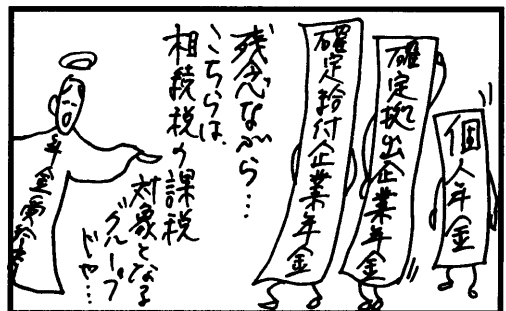 個人年金
確定拠出企業年金
確定給付企業年金
残念ながら…
こちらは、
相続税の課税
対象となる
グループ
ドヤ…